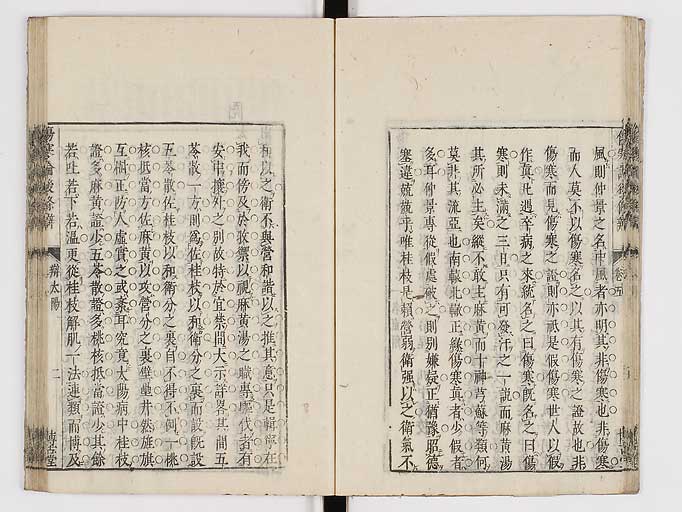 風則仲景之名中風者亦明其非傷寒也非傷寒
而人莫不以傷寒名之以其有傷寒之證故也非
傷寒而見傷寒之證則亦祇是假傷寒世人以假
作真已遇辛病之來統名之曰傷寒既名之曰傷
寒則未滿之三日只有可發汗之一說而麻黃湯
其所必主矣縱不敢主麻黃而十神芎蘇等類何
莫非其流亞也南轅北轍正緣傷寒真者少假者
多耳仲景專從假處破之則別嫌疑正猶豫
塞違兢兢乎唯桂枝是賴營弱衛強以之衛氣不
和以之衛不與營和諧以之推其意只是輯寧在
我而傍及於攻禦以視麻黃湯之職專
安串攘外之別故特於宜禁間大示詳畧其間五
苓散一方則為佐桂枝以和衛分之裏而設既設
五苓散佐桂枝以和衛分之裏自不得不例一桃
核抵當方佐麻黃以攻營分之裏壁壘井然旌旗
互樹正防人虛實之或紊耳究竟太陽病中桂枝
證多麻黃證少五苓散證多桃核抵當證少其餘
若吐若下若溫更從桂枝解肌一法連類而博及
傷寒論後條辨
辨太陽
二
博古堂